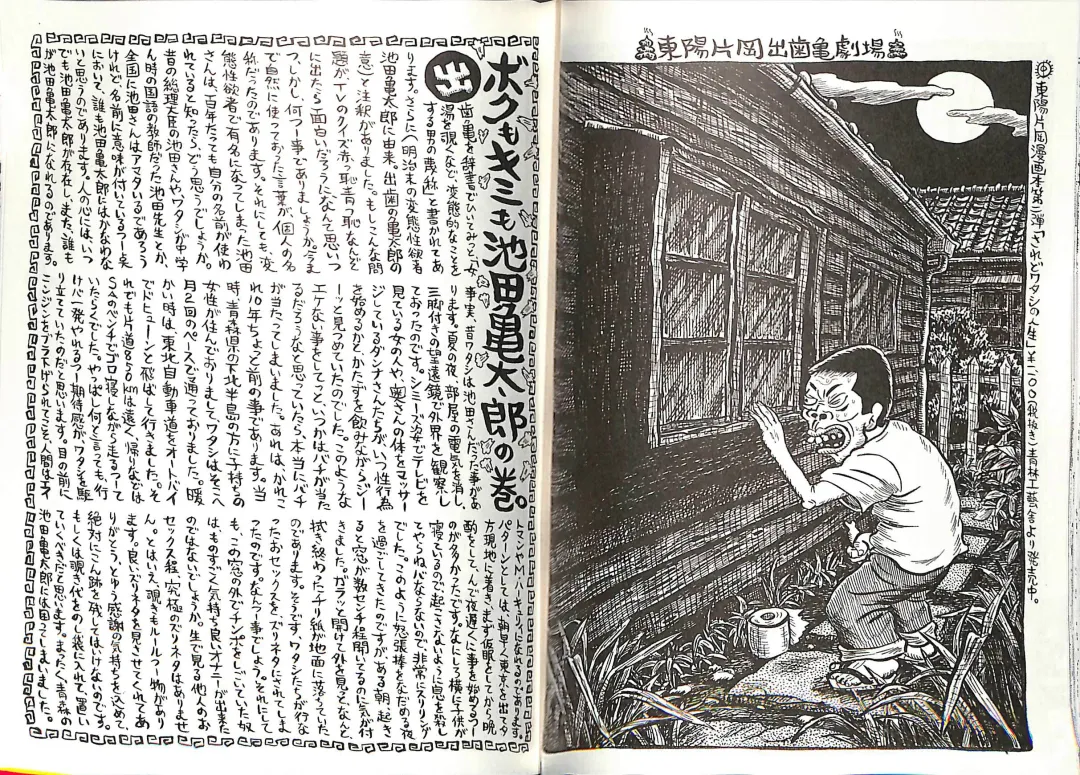 東陽片岡出歯亀劇場
東陽片岡漫画本第二弾「されどワタシの人生」￥一二〇〇(税抜き)青林工藝舎より発売中。
ボクもキミも池田亀太郎の巻。
出
歯亀を辞書でひいてみっと〈女
湯を覗くなど、変態的なことを
する男の蔑称〉と書かれてあ
ります。さらに〈明治末の変態性欲者
池田亀太郎に由来。出歯の亀太郎の
意〉と注釈がありました。もしこんな問
題がTVのクイズ赤っ恥青っ恥なんど
に出たら面白いだろうになんて思いつ
つ、しかし何つー事でありましょうか。今ま
で自然に使っておった言葉が、個人の名
称だったのであります。それにしても、変
態性欲者で有名になってしまった池田
さんは、百年たっても自分の名前が使わ
れていると知ったら、どう思うでしょうか。
昔の総理大臣の池田さんや、ワタシが中学
ん時の国語の教師だった池田先生とか、
全国に池田さんはアマタいるであろう
けれど、名前に意味が付いているつー点
において、誰も池田亀太郎にはかなわな
いと思うのであります。人の心にはいつ
でも池田亀太郎が存在し、また、誰も
が池田亀太郎になれるのであります。
事実、昔ワタシは池田さんだった事があ
ります。夏の夜、部屋の電気を消し、
三脚付きの望遠鏡で外界を観察し
ておったのです。シミーズ姿でテレビを
見ている女の人や、奥さんの体をマッサー
ジしているダンナさんたちが、いつ性行為
を始めるかとかたずを飲みながら、ジー
ーッと見つめていたのでした。このような
エゲない事をしてっと、いつかはバチが当た
るだろうなと思っていたら、本当にバチ
が当たってしまいました。あれは、かれこ
れ10年ちょっと前の事であります。当
時、青森県の下北半島の方に子持ちの
女性が住んでおりまして、ワタシはそこへ
月2回のペースで通っておりました。暖
かい時は、東北自動車道をオートバイ
でドヒューンと飛ばして行きました。そ
れでも片道850kmは遠く、帰りなどは
SAのベンチでゴロ寝しながら走るつーて
いたらくでした。やっぱし何と言っても、行
けバ一発やれるつー期待感が、ワタシを駆
り立てていたのだと思います。目の前に
ニンジンをブラ下げられてこそ、人間は
になれるのであります。
パターンとしては、朝早く東京を出て夕
方現地に着き、まず仮眠をしてから晩
酌をして、んで夜遅くに事を始めるつー
のが多かったです。なにしろ横に子供が
寝ているので、起こさないように息を殺し
てやらねバならないので、非常にスリリング
でした。このように怒張棒をなだめる夜
を過ごしてきたのですが、ある朝、起き
ると窓が数センチ程開いてるのに気が付
きました。ガラッと開けて外を見ると、なんと
拭き終わったチリ紙が地面に落ちていた
のであります。どうやらワタシたちが行な
ったおセックスを、ズリネタにされてしま
ったのです。なんつー事でしょう。それにして
も、この窓の外でチンポをしごいていた奴
は、ものすごく気持ち良いオナニーが出来た
のではないでしょうか。生で見る他人のお
セックス程、究極のズリネタはありませ
ん。とはいえ、覗きもルールつー物があり
ます。良いズリネタを見させてくれてあ
りがとう、とゆう感謝の気持ちを込めて
絶対にこん跡を残してはいけないのです。
もしくは覗き代をのし袋に入れて置い
ていくべきだと思います。まったく青森の
池田亀太郎には困ってしまいました。